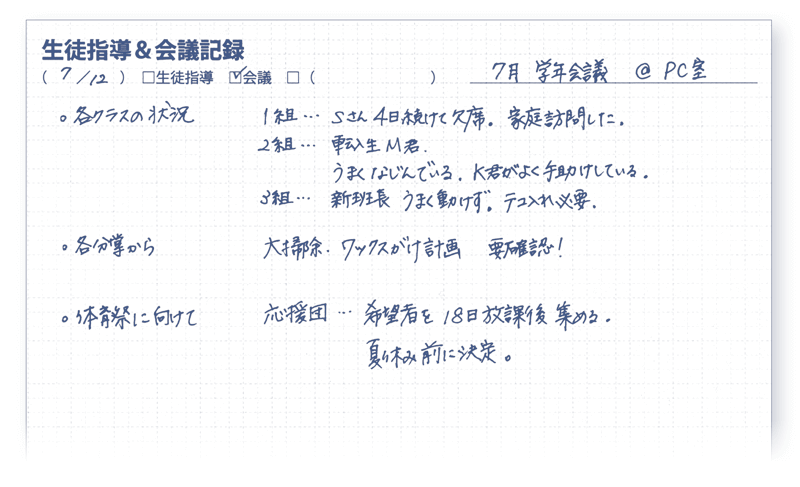 生徒指導&会議記録
( 7/12 ) □生徒指導 ☑会議 □( )
7月 学年会議 @ PC室
。各クラスの状況 1組… Sさん 4日続けて欠席。家庭訪問した。
2組… 転入生 M君.
うまくなじんでいる。K君がよく手助けしている。
3組… 新班長 うまく動けず。テコ入れ必要.
。各分掌から 大掃除. ワックスがけ計画 要確認!
。体育祭に向けて 応援団 … 希望者を 18日放課後 集める。
夏休み前に決定。